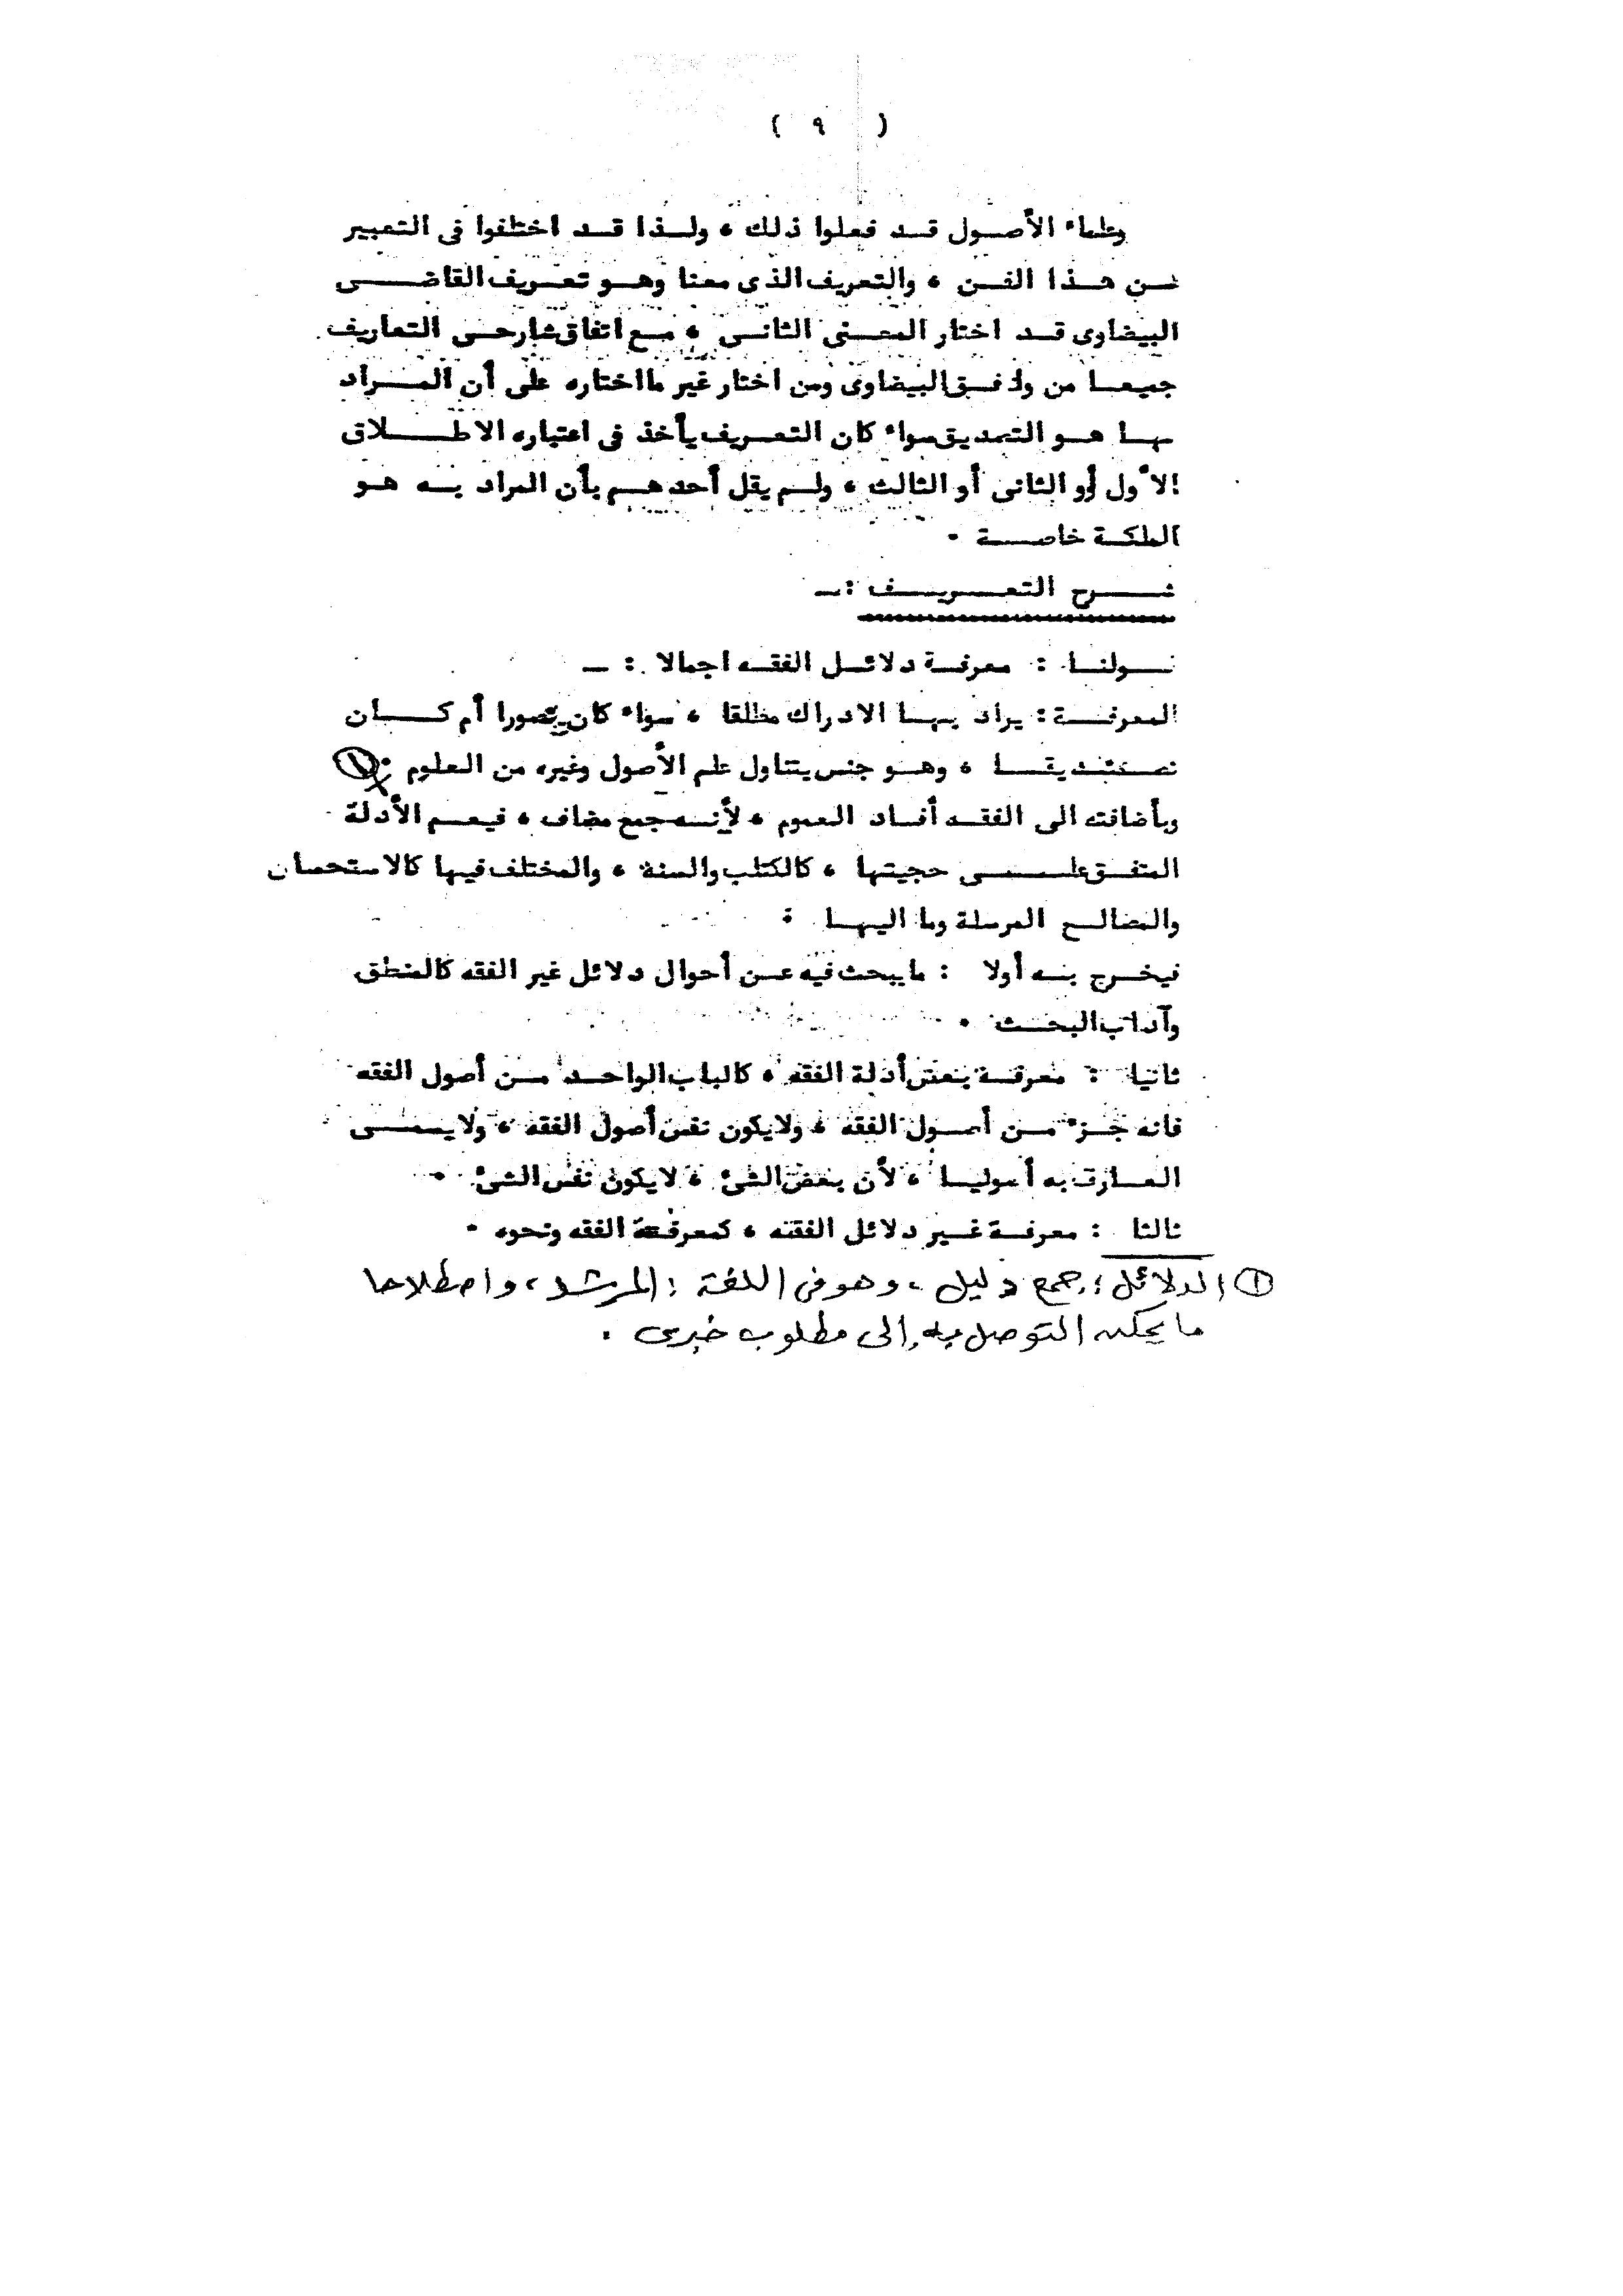 ( ٩ )
وعلماء الأصول قد فعلوا ذلك ، ولذا قد اختلفوا فى التعبير
عن هذا الفن ، والتعريف الذى معنا وهو تعريف القاضى
البيضاوى قد اختار المعنى الثانى ، مع اتفاق شارحى التعاريف
جميعا من وافق البيضاوى ومن اختار غير ما اختاره على أن المراد
بها هو التصديق سواء كان التعريف يأخذ فى اعتباره الاطلاق
الأول أو الثانى أو الثالث ، ولم يقل أحدهم بأن المراد به هو
الملكة خاصة .
شرح التعريف :ـ
قولنا : معرفة دلائل الفقه اجمالا : ـ
المعرفة : يراد بها الادراك مطلقا ، سواء كان تصورا أم كان
تصديقا ، وهو جنس يتناول علم الأصول وغيره من العلوم . (١)
وبأضافته الى الفقه أفاد العموم ، لأنه جمع مضاف ، فيعم الأدلة
المتفق على حجيتها ، كالكتاب والسنة ، والمختلف فيها كالاستحسان
والمصالح المرسلة وما اليها .
فيخرج به أولا : مايبحث فيه عن أحوال دلائل غير الفقه كالمنطق
وآداب البحث .
ثانيا : معرفة بعض أدلة الفقه ، كالباب الواحد من أصول الفقه
فانه جزء من أصول الفقه ، ولايكون نفس أصول الفقه ، ولايسمى
العارف به أصوليا ، لأن بعض الشئ ، لايكون نفس الشئ .
ثالثا : معرفة غير دلائل الفقه ، كمعرفة الفقه ونحوه .
(١) الدلائل : جمع دليل ، وهو فى اللغة : المرشد ، واصطلاحا
ما يمكن التوصل به إلى مطلوب خبرى .